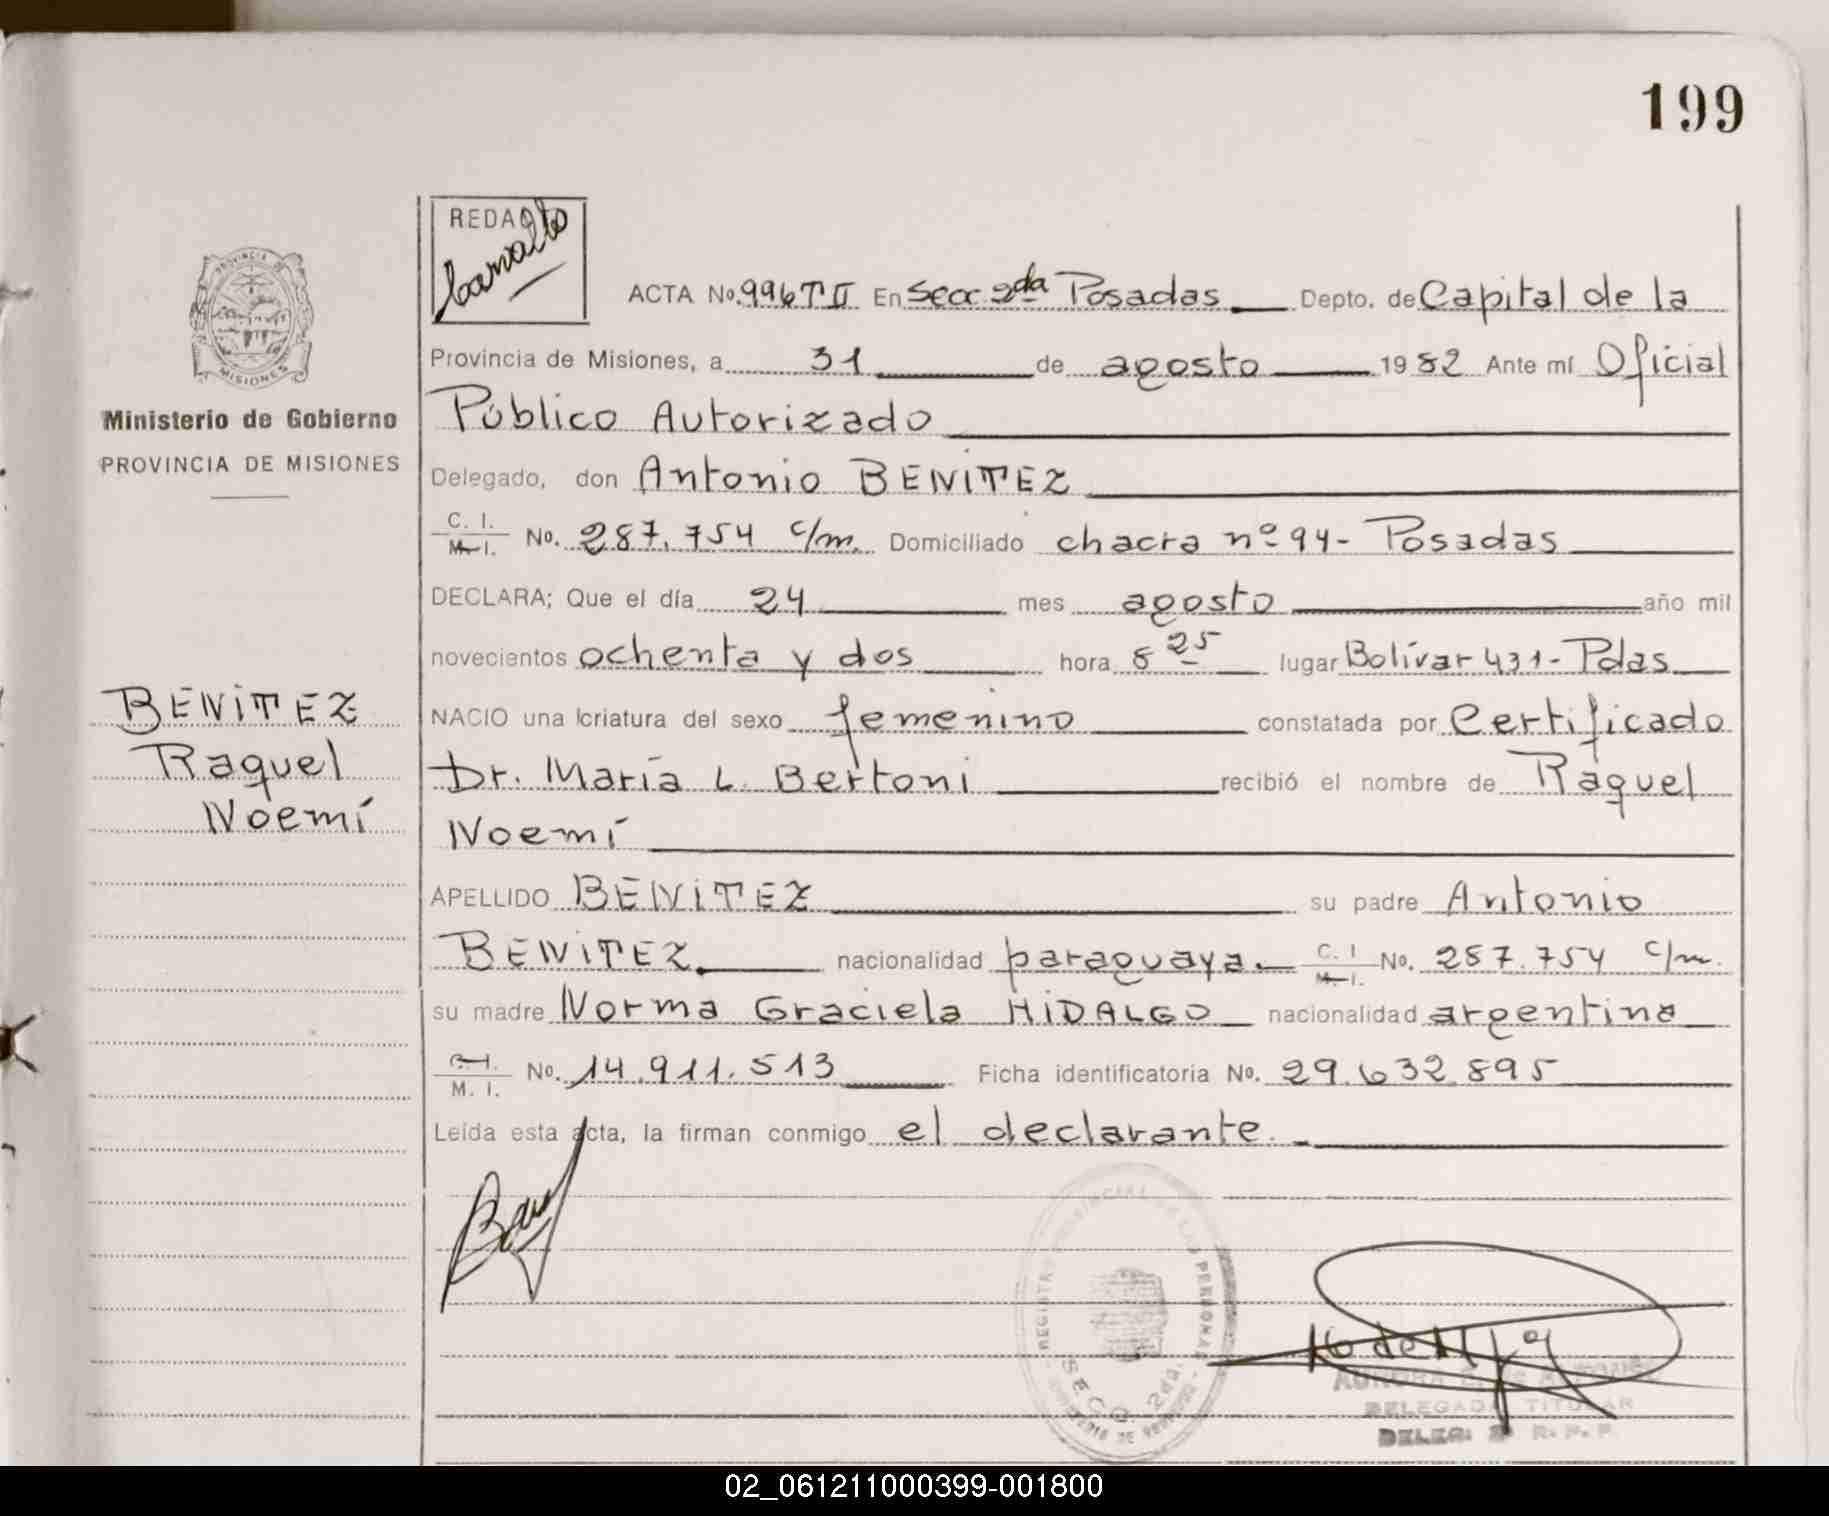 199
REDACTO
ACTA No. 996 T II En Secc. 2da Posadas Depto. de Capital de la
Provincia de Misiones, a 31 de agosto 1982 Ante mí Oficial
Público Autorizado
Ministerio de Gobierno
PROVINCIA DE MISIONES
Delegado, don Antonio BENITEZ
C. I.
M. I. No. 287.754 c/m. Domiciliado chacra nº 94- Posadas
DECLARA; Que el día 24 mes agosto año mil
novecientos ochenta y dos hora 8 25 lugar Bolívar 431- Pdas
BENITEZ
Raquel
Noemí
NACIO una criatura del sexo femenino constatada por Certificado
Dr. María L. Bertoni recibió el nombre de Raquel
Noemí
APELLIDO BENITEZ su padre Antonio
BENITEZ. nacionalidad paraguaya. C. I
M. I. No. 287.754 c/m.
su madre Norma Graciela HIDALGO nacionalidad argentina
C. I.
M. I. No. 14.911.513 Ficha identificatoria No. 29.632.895
Leída esta acta, la firman conmigo el declarante.
SECC. 2da.
DELEGADA TITULAR
DELEG. 2 R. P. P.
02_061211000399-001800